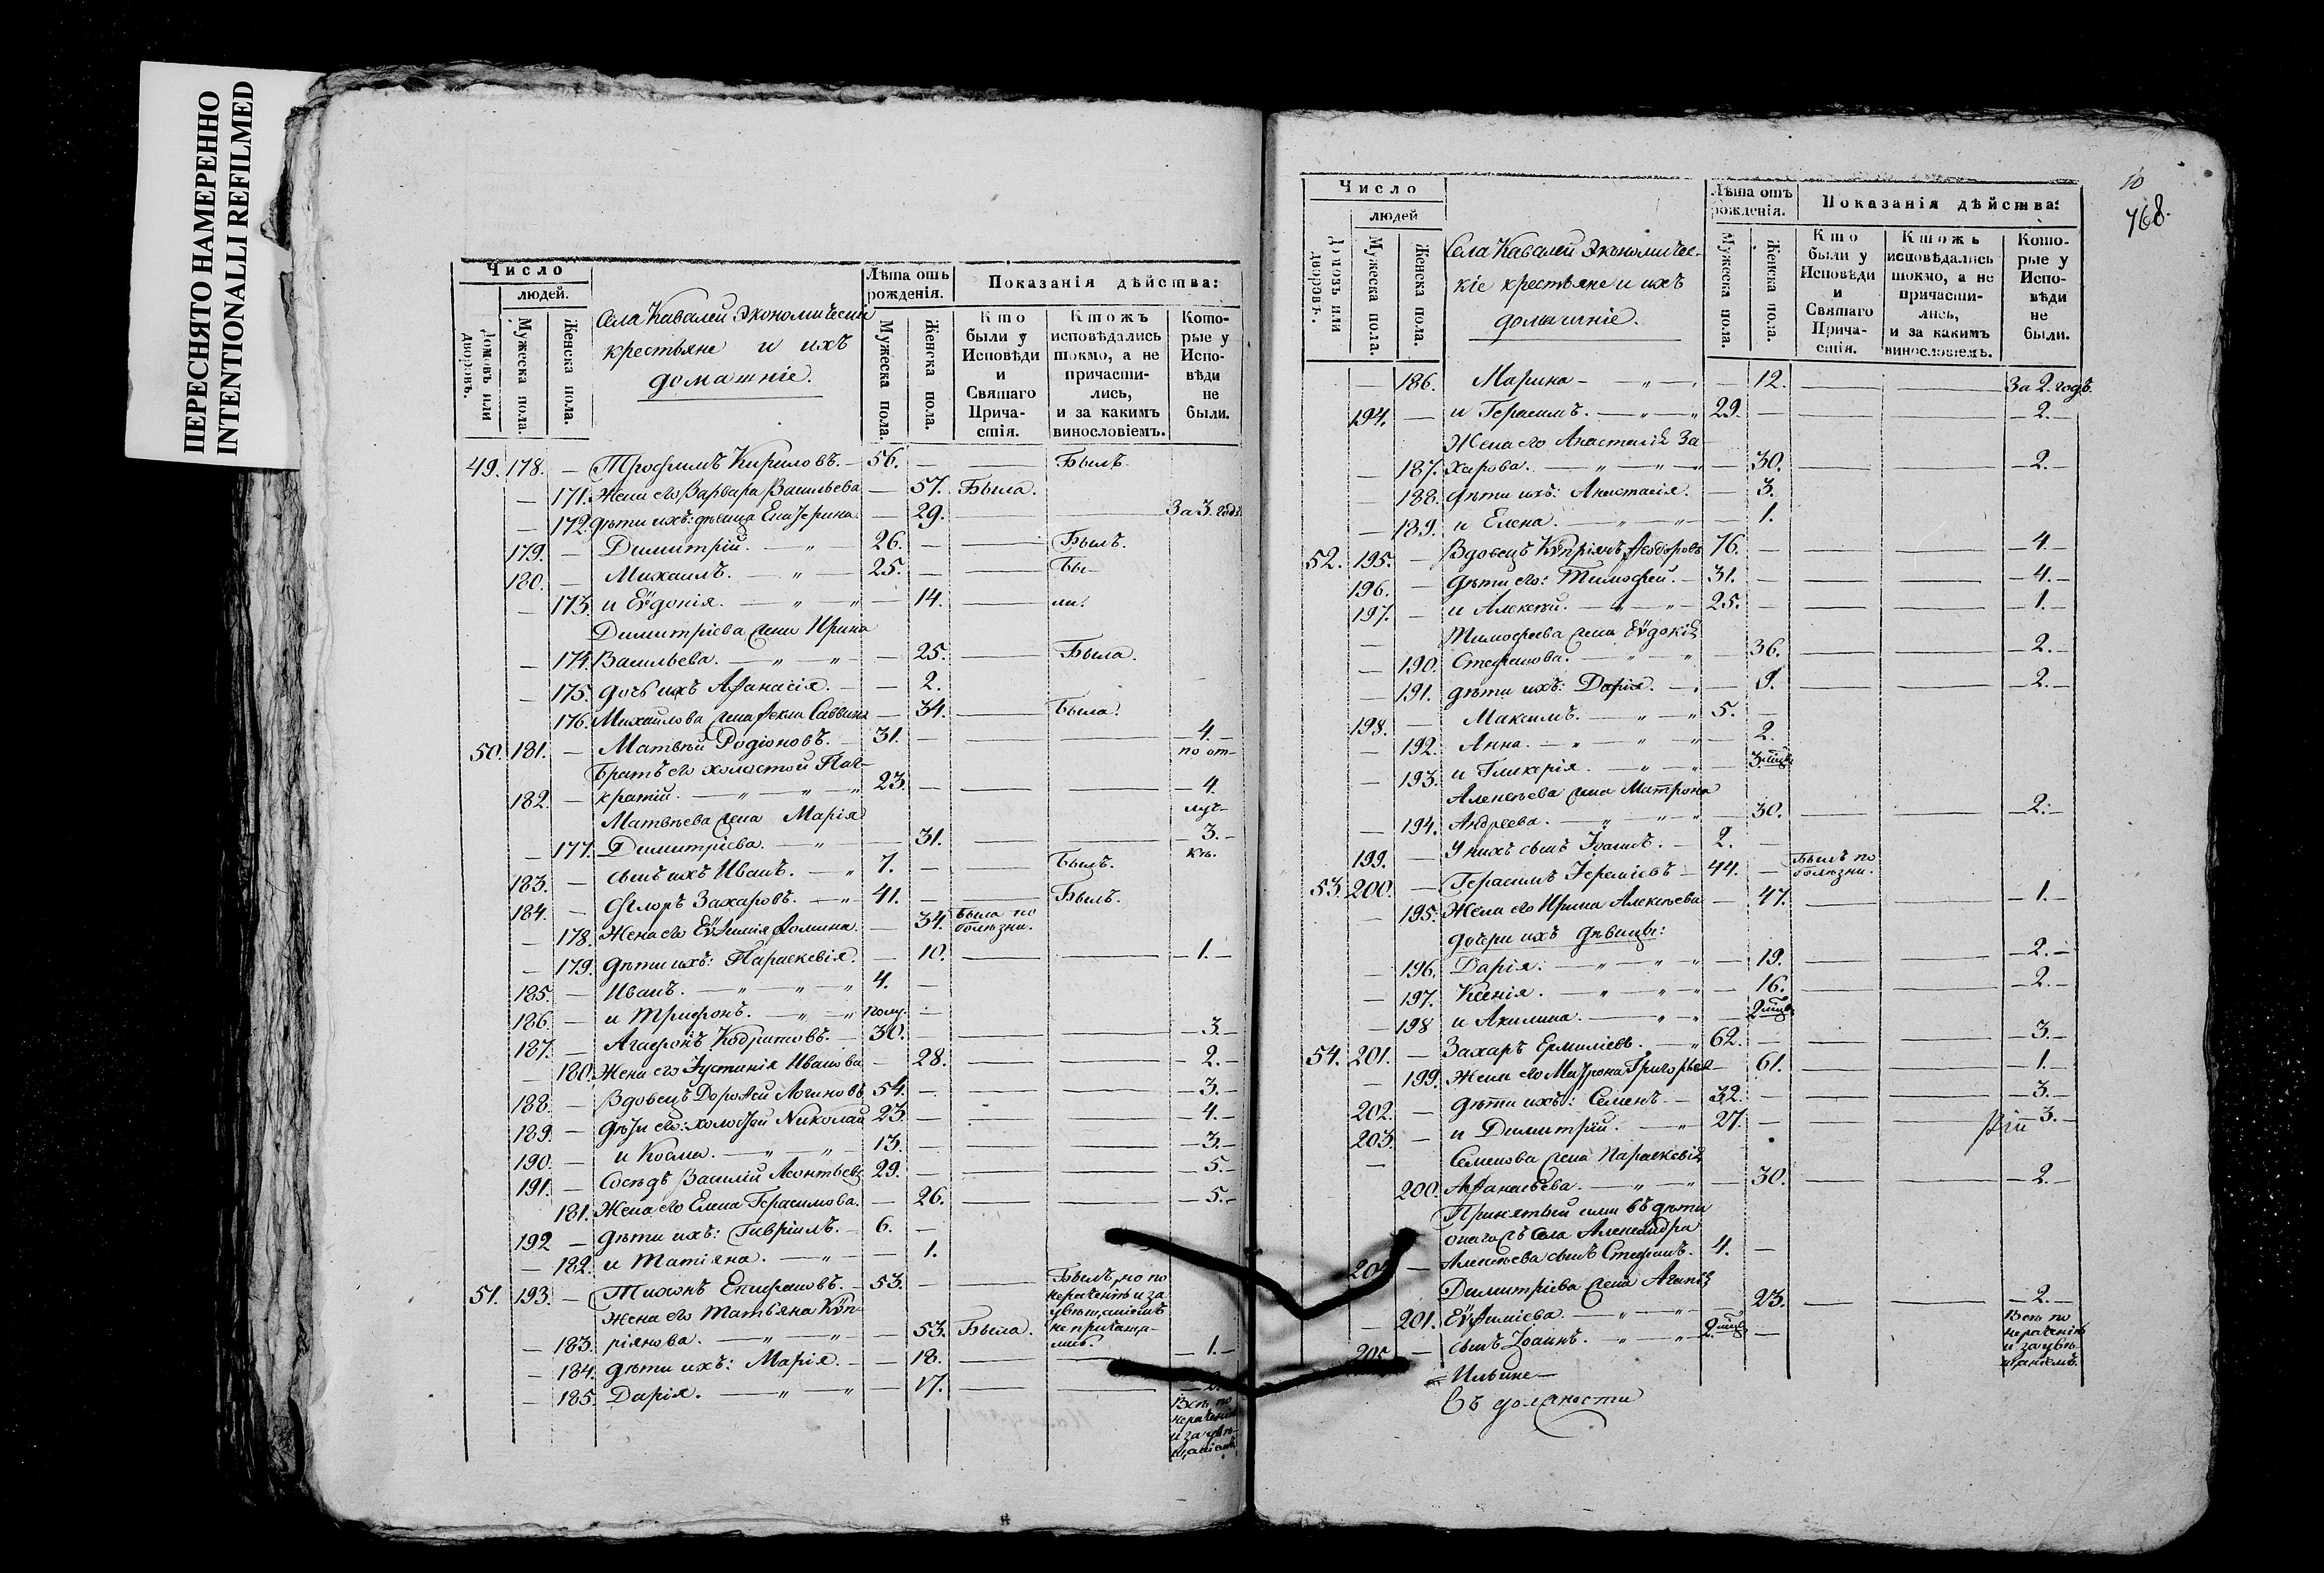 ПЕРЕСНЯТО НАМЕРЕННО
INTENTIONALLI REFILMED
Число
людей.
Домовъ или дворовъ.
Мужеска пола.
Женска пола.
Села Кавалей Экономическіи
крестьяне и ихъ
домашніе.
Лѣта отъ рожденія.
Мужеска пола.
Женска пола.
Показанія дѣйства:
Кто были у Исповѣди и Святаго Причастія.
Ктожъ исповѣдались токмо, а не причастились, и за какимъ винословіемъ.
Которые у Исповѣди не были.
49. 178. — Трофимъ Кириловъ. — 56. — — Былъ.
— 171. Жена его Варвара Васильева — 57. Была.
— 172. дѣти ихъ: дѣвица Екатерина — 29. — За 3. годъ.
179. — Димитрій. — 26. — — Былъ.
180. — Михаилъ. — 25. — — Бы-
— 173. и Еѵдокія. — 14. — ли.
Димитріева жена Ирина
— 174. Васильева. — 25. — Была.
— 175. дочь ихъ Афанасія. — 2.
176. Михайлова жена Ѳекла Саввина — 34. — Была.
50. 181. — Матвѣй Родіоновъ. — 31. — — — 4. —
по от-
братъ его холостой Пан-
182. — кратій. — 23. — — — 4.
луч-
Матвѣева жена Марія
— 177. Димитріева. — 31. — — 3. —
кѣ.
183. — сынъ ихъ Иванъ. — 7. — — Былъ.
184. — Флоръ Захаровъ. — 41. — — Былъ.
— 178. Жена его Еѵѳимія Фомина. — 34. Была по болѣзни.
— 179. дѣти ихъ: Параскевія. — 10. — — 1. —
185. — Иванъ. — 4. —
186. — и Трифонъ. — полу. —
187. — Агафонъ Кодратовъ. — 30. — — — 3. —
— 180. Жена его Іустинія Иванова — 28. — — 2. —
188. — Вдовецъ Дороѳей Логиновъ 54. — — — 3. —
189. — дѣти его: холостой Николай 23. — — — 4. —
190. — и Косма. — 13. — — — 3. —
191. — Сосѣдъ Василій Леонтьевъ 29. — — — 5. —
181. Жена его Елена Герасимова. — 26. — — 5. —
192 — дѣти ихъ: Гавріилъ. — 6. —
— 182. и Татіяна. — 1.
51. 193. — Тихонъ Епифановъ. — 53. — — Былъ, но по
нераченію и за
увѣщаніемъ
не прича-
Жена его Татьяна Кѵп-
— 183. ріянова. — 53. Была.
— 184. дѣти ихъ: Марія. — 18. — — 1. —
— 185. Дарія. — 17. — —
Всѣ по
нераченію
и за увѣ-
щаніемъ.
10
768.
Число
людей
Домовъ или дворовъ.
Мужеска пола.
Женска пола.
Села Кавалей Экономичес-
кіе крестьяне и ихъ
домашніе.
Лѣта отъ рожденія.
Мужеска пола.
Женска пола.
Показанія дѣйства:
Кто были у Исповѣди и Святаго Причастія.
Ктожъ исповѣдались токмо, а не причастились, и за какимъ винословіемъ.
Которые у Исповѣди не были.
186. Марина — 12. — — За 2. годъ.
194. — и Герасимъ. — 29. — — 2. —
Жена его Анастасія За-
— 187. харова. — 30. — — 2. —
— 188. дѣти ихъ: Анастасія. — 3.
— 189. и Елена. — 1.
52. 195. — Вдовецъ Кѵпріянъ Ѳеодоровъ 76. — — — 4. —
196. — дѣти его: Тимофей. — 31. — — — 4. —
197. — и Алексѣй. — 25. — — — 1. —
Тимофеева жена Еѵдокія
— 190. Стефанова. — 36. — — 2. —
— 191. дѣти ихъ: Дарія. — 9. — — 2. —
198. — Максимъ. — 5. —
— 192. Анна. — 2.
— 193. и Гликерія. — 3. мѣсяц.
Алексѣева жена Матрона
— 194. Андреева. — 30. — — 2. —
199. — У нихъ сынъ Іоаннъ. — 2. —
53. 200. — Герасимъ Іереміевъ — 44. — Былъ по болѣзни.
— 195. Жена его Ирина Алексѣева — 47. — — 1. —
дочери ихъ дѣвицы:
— 196. Дарія. — 19. — — 2. —
— 197. Ксенія. — 16. — — 2. —
— 198 и Акилина. — 2 мѣсяц.
54. 201. — Захаръ Ермиліевъ. — 62. — — — 3. —
— 199. Жена его Матрона Григорьева — 61. — — 1. —
202. — дѣти ихъ: Семенъ. — 32. — — — 3. —
203. — и Димитрій. — 27. — — — 3. —
Семенова жена Параскевія
200. Афанасьева. — 30. — — 2. —
Принятый ими въ дѣти
онагожъ села Александра
Алексѣева сынъ Стефанъ. 4. —
Димитріева жена Агапія
— 201. Еѵѳиміева. — 23. — — 2. —
205. — сынъ Іоаннъ. — 2 мѣсяц. —
Всѣ по
нераченію
и за увѣ-
щаніемъ.
Ильине —
въ должности